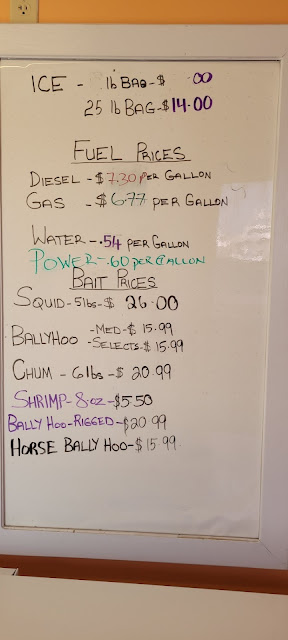 ICE - lb BAG-$ .00
25 lb BAG-$14.00
FUEL PRICES
DIESEL-$7.30 PER GALLON
GAS -$6.77 PER GALLON
WATER-.54 PER GALLON
POWER-.60 PER GALLON
BAIT PRICES
SQUID-5lbs-$ 26.00
BALLYHOO -MED-$ 15.99
-SELECTS-$ 15.99
CHUM - 6lbs-$ 20.99
SHRIMP-8oz-$5.50
BALLY HOO-RIGGED-$20.99
HORSE BALLY HOO-$15.99